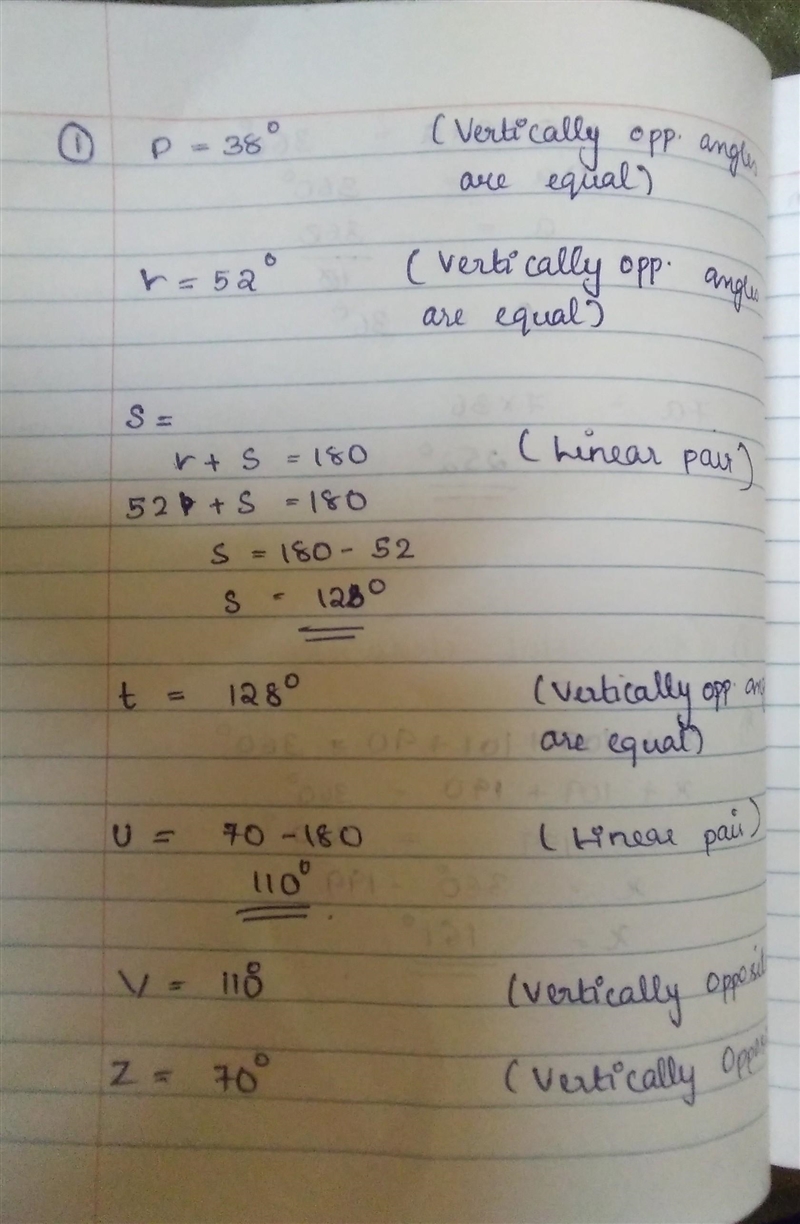 ① P = 38° (Vertically opp. angles
are equal)
r = 52° (Vertically opp. angles
are equal)
S =
r + S = 180 (Linear pair)
52 + S = 180
S = 180 - 52
S = 128°
t = 128° (Vertically opp. ang
are equal)
U = 70 - 180 (Linear pair)
110°
V = 110° (Vertically opposit
Z = 70° (Vertically Oppos